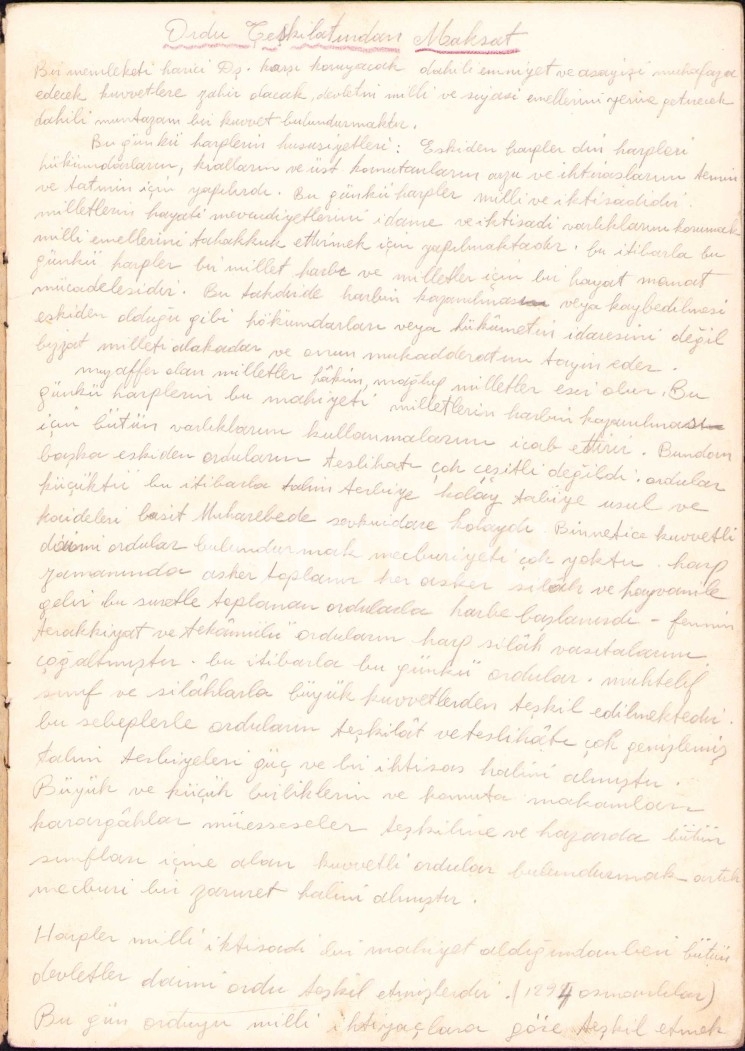 Ordu Teşkilatından Maksat
Bir memleketi harici Dş. karşı koruyacak dahili emniyet ve asayişi muhafaza
edecek kuvvetlere zahir olacak, devletin milli ve siyasi emellerini yerine getirecek
dahili muntazam bir kuvvet bulundurmaktır.
Bu günkü harplerin hususiyetleri: Eskiden harpler din harpleri
hükümdarların, kralların ve üst komutanların arzu ve ihtiraslarını temin
ve tatmin için yapılırdı. Bu günkü harpler milli ve iktisadidir.
milletlerin hayati mevcudiyetlerini idame ve iktisadi varlıklarını korumak
milli emellerini tahakkuk ettirmek için yapılmaktadır. bu itibarla bu
günkü harpler bir millet harbi ve milletler için bir hayat mamat
mücadelesidir. Bu takdirde harbin kazanılması veya kaybedilmesi
eskiden olduğu gibi hökümdarları veya hükûmetin idaresini değil
bizzat milleti alakadar ve onun mukadderatını tayin eder.
muzaffer olan milletler hâkim, mağlup milletler esir olur. Bu
günkü harplerin bu mahiyeti milletlerin harbin kazanılması
için bütün varlıklarını kullanmalarını icab ettirir. Bundan
başka eskiden orduların teslihatı çok çeşitli değildi. ordular
küçüktü bu itibarla talim terbiye kolay tabiye usul ve
kaideleri basit Muharebede sevkuidare kolaydı. Binnetice kuvvetli
daimi ordular bulundurmak mecburiyeti çok yoktu. harp
zamanında asker toplanır her asker silâh ve hayvanile
gelir bu suretle toplanan ordularla harbe başlanırdı - fennin
terakkiyat ve tekâmülü orduların harp silâh vasıtalarını
çoğaltmıştır. bu itibarla bu günkü ordular. muhtelif
sınıf ve silâhlarla büyük kuvvetlerden teşkil edilmektedir.
bu sebeplerle orduların teşkilât ve teslihâtı çok genişlemiş
talim terbiyeleri güç ve bir ihtisas halini almıştır.
Büyük ve küçük birliklerin ve komuta makamları
karargâhlar müesseseler teşkiline ve hazarda bütün
sınıfları içine alan kuvvetli ordular bulundurmak artık
mecburi bir zaruret halini almıştır.
Harpler milli iktisadi bir mahiyet aldığındanberi bütün
devletler daimi ordu teşkil etmişlerdir. (1294 osmanlılar)
Bu gün orduyu milli ihtiyaçlara göre teşkil etmek